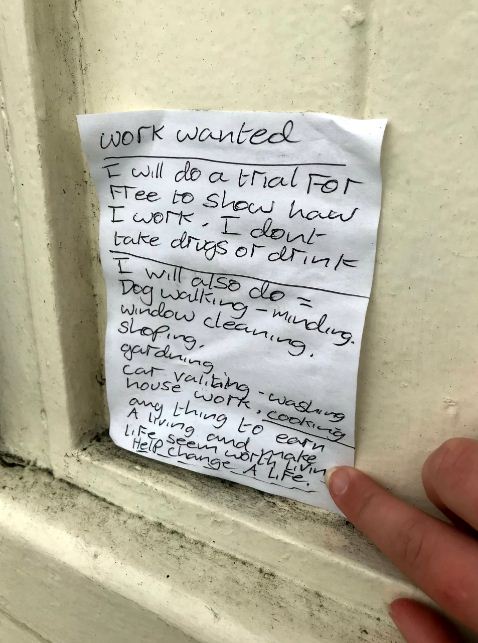 work wanted
I will do a trial For
Free to show haw
I work. I dont
take drugs or drink
I will also do =
Dog walking - minding.
window cleaning.
shoping.
gardning
car valiting - washing
house work. cooking
any thing to earn
A living and make
life seem worth livin
Help change A life.